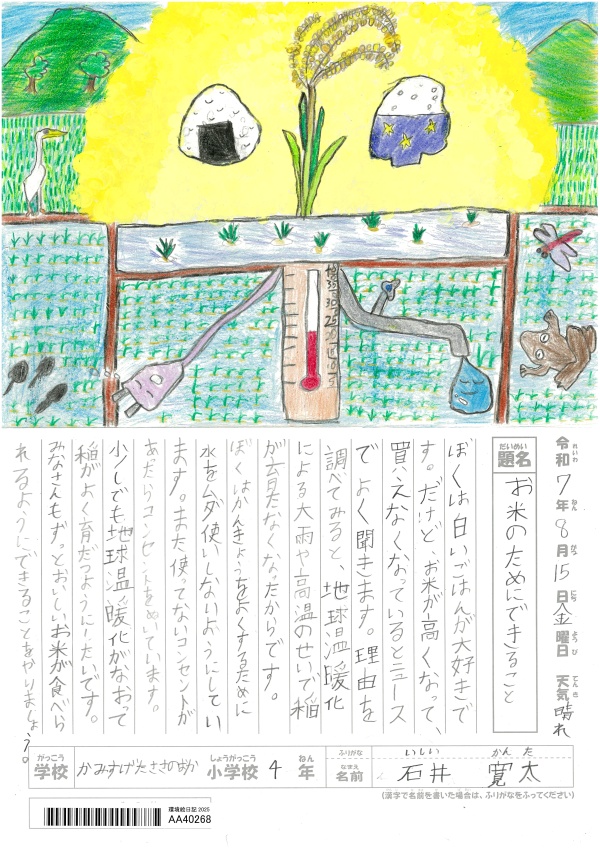 令和7年8月15日金曜日 天気晴れ
れいわ ねん がつ にち ようび てんき
だいめい
題名
お米のためにできること
ぼくは白いごはんが大好きで
す。だけど、お米が高くなって、
買えなくなっているとニュース
でよく聞きます。理由を
調べてみると、地球温暖化
による大雨や高温のせいで稲
が育たなくなったからです。
ぼくはかんきょうをよくするために
水をムダ使いしないようにしてい
ます。また使ってないコンセントが
あったらコンセントをぬいています。
少しでも地球温暖化がなおって
稲がよく育だつようにしたいです。
みなさんもずっとおいしいお米が食べら
れるようにできることをやりましょう。
がっこう しょうがっこう ねん
学校 かみすげたささのおか 小学校 4 年
ふりがな いしい かんた
なまえ
名前 石井 寛太
(漢字で名前を書いた場合は、ふりがなをふってください)
環境絵日記 2025
AA40268
40
35
30
25
20